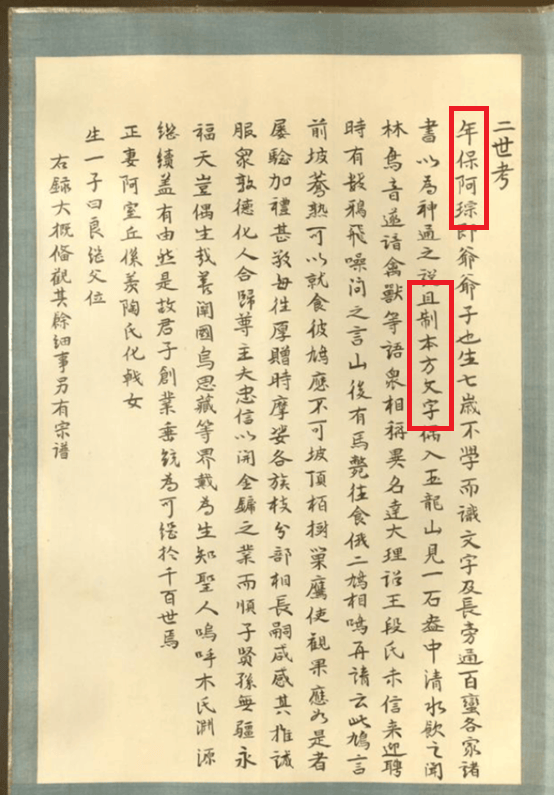 二世考
年保阿琮即爺爺子也生七歲不學而識文字及長旁通百蠻各家諸
書以為神通之說且制本方文字偶入玉龍山見一石盎中清水飲之聞
林鳥音遂語禽獸等語衆相稱異名達大理詔王段氏未信来迎聘
時有鼓鴉飛噪问之言山後有馬斃往食俄二鳩相鳴再請云此鳩言
前坡蕎熟可以就食彼鳩應不可坡頂栢樹巢鷹使觀果應如是者
屡驗加禮甚敬每徃厚贈時摩娑各族枝分部相長嗣咸感其推誠
服衆敦德化人合歸尊主大忠信以開金鏞之業而順子賢孫無疆永
福天豈偶生哉善闡國烏思藏等界戴為生知聖人嗚呼木氏淵源
継續盖有由然是故君子創業垂統為可継於千百世焉
正妻阿室丘俤羨陶氏化戟女
生一子曰良継父位
右録大概俻觀其餘細事另有宗譜